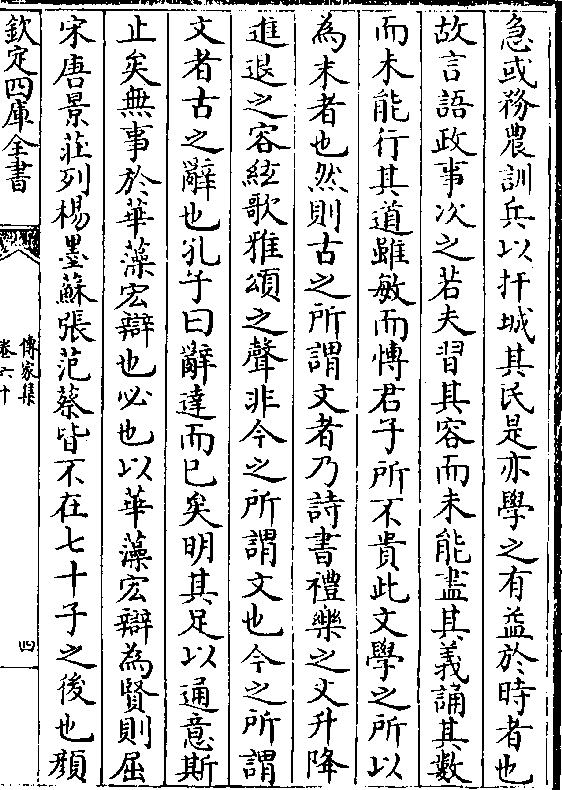 急或務農訓兵以扞城其民是亦學之有益於時者也
故言語政事次之若夫習其容而未能盡其義誦其數
而未能行其道雖敏而愽君子所不貴此文學之所以
為末者也然則古之所謂文者乃詩書禮樂之文升降
進退之容絃歌雅頌之聲非今之所謂文也今之所謂
文者古之辭也孔子曰辭達而已矣明其足以通意斯
止矣無事於華藻宏辯也必也以華藻宏辯為賢則屈
宋唐景莊列楊墨蘇張范蔡皆不在七十子之後也顔
欽定四庫全書
傳家集
卷六十
四